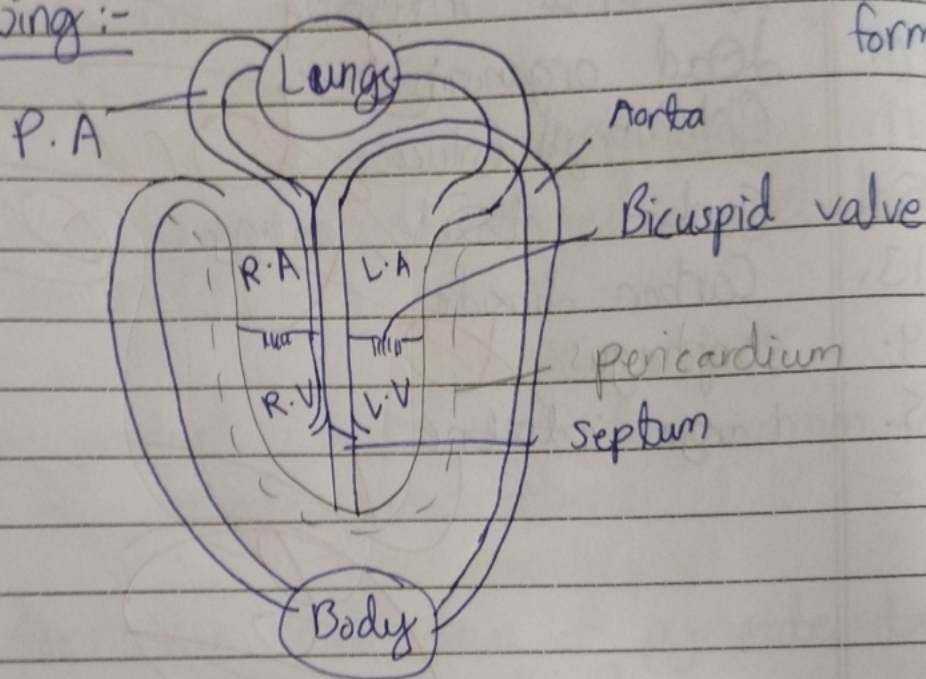 ing :-
form
Lungs
P.A
Aorta
Bicuspid valve
R.A
L.A
pericardium
R.V
L.V
septum
Body